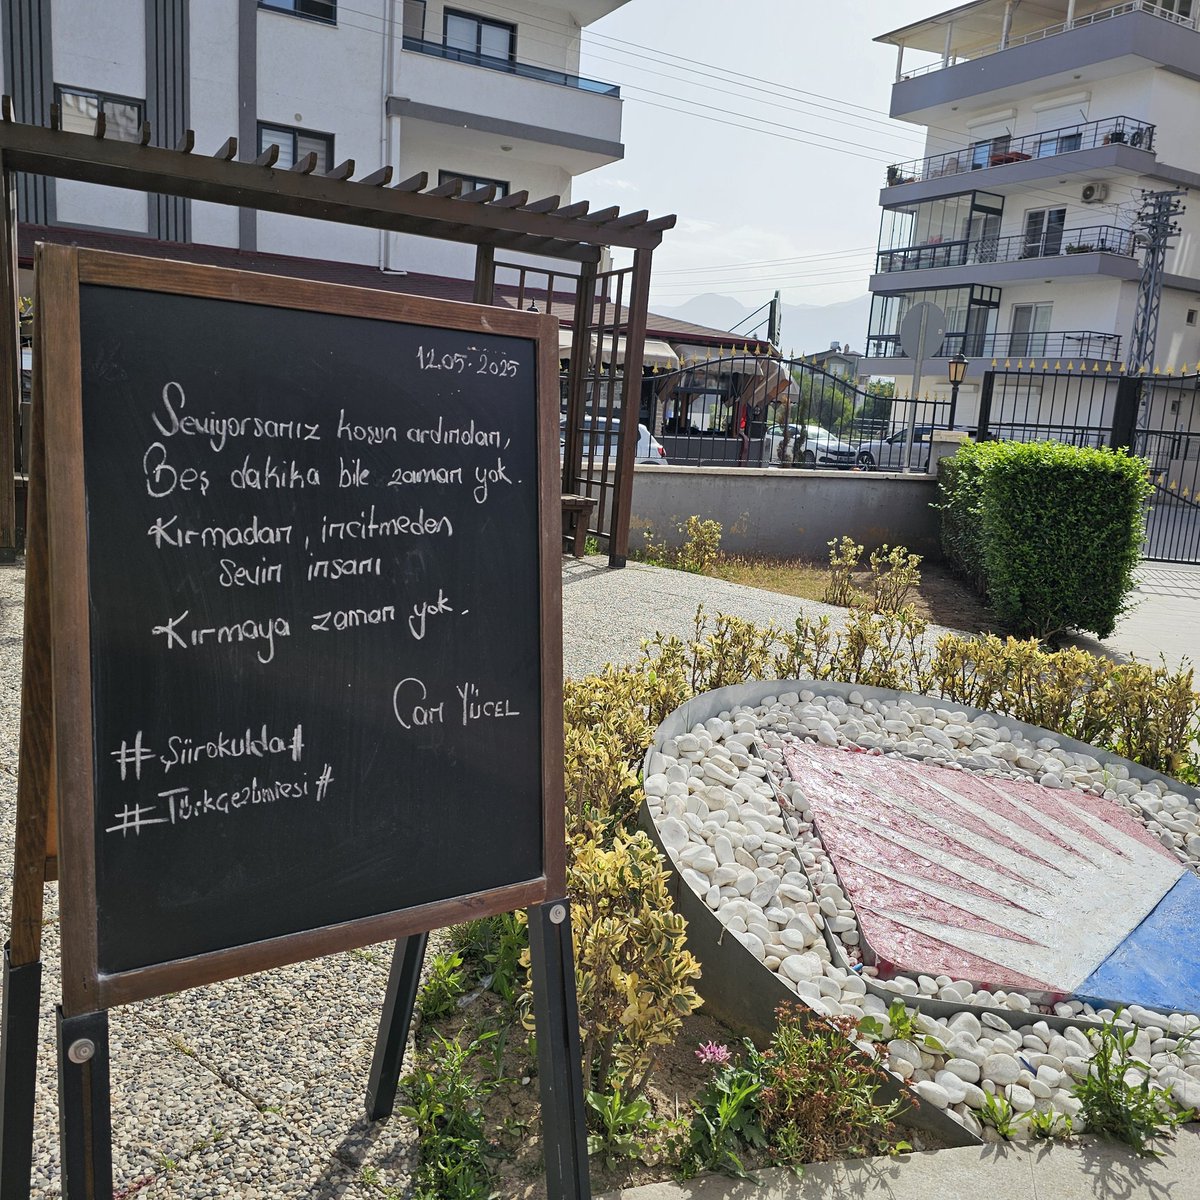 12.05.2025
Seviyorsanız koşun ardından,
Beş dakika bile zaman yok.
Kırmadan, incitmeden
sevin insanı
Kırmaya zaman yok.
Can YÜCEL
#Şiirokulda#
#Türkgezbmiresi#